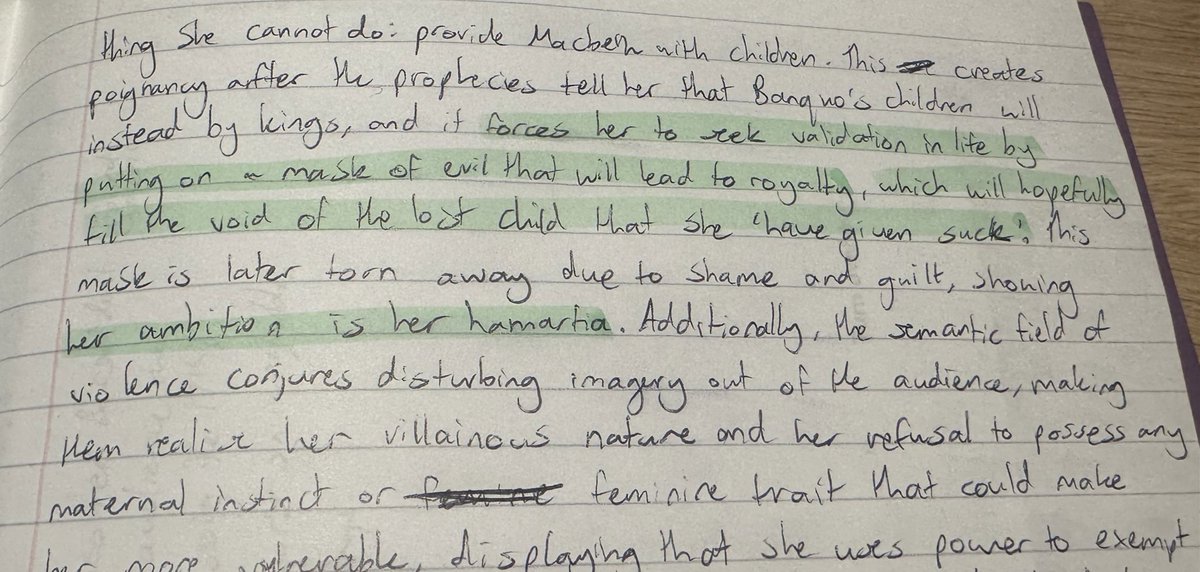 thing she cannot do: provide Macbeth with children. This creates
poignancy after the prophecies tell her that Banquo's children will
instead by kings, and it forces her to seek validation in life by
putting on a mask of evil that will lead to royalty, which will hopefully
fill the void of the lost child that she 'have given suck'. This
mask is later torn away due to shame and guilt, showing
her ambition is her hamartia. Additionally, the semantic field of
violence conjures disturbing imagery out of the audience, making
them realise her villainous nature and her refusal to possess any
maternal instinct or feminine trait that could make
her more vulnerable, displaying that she uses power to exempt